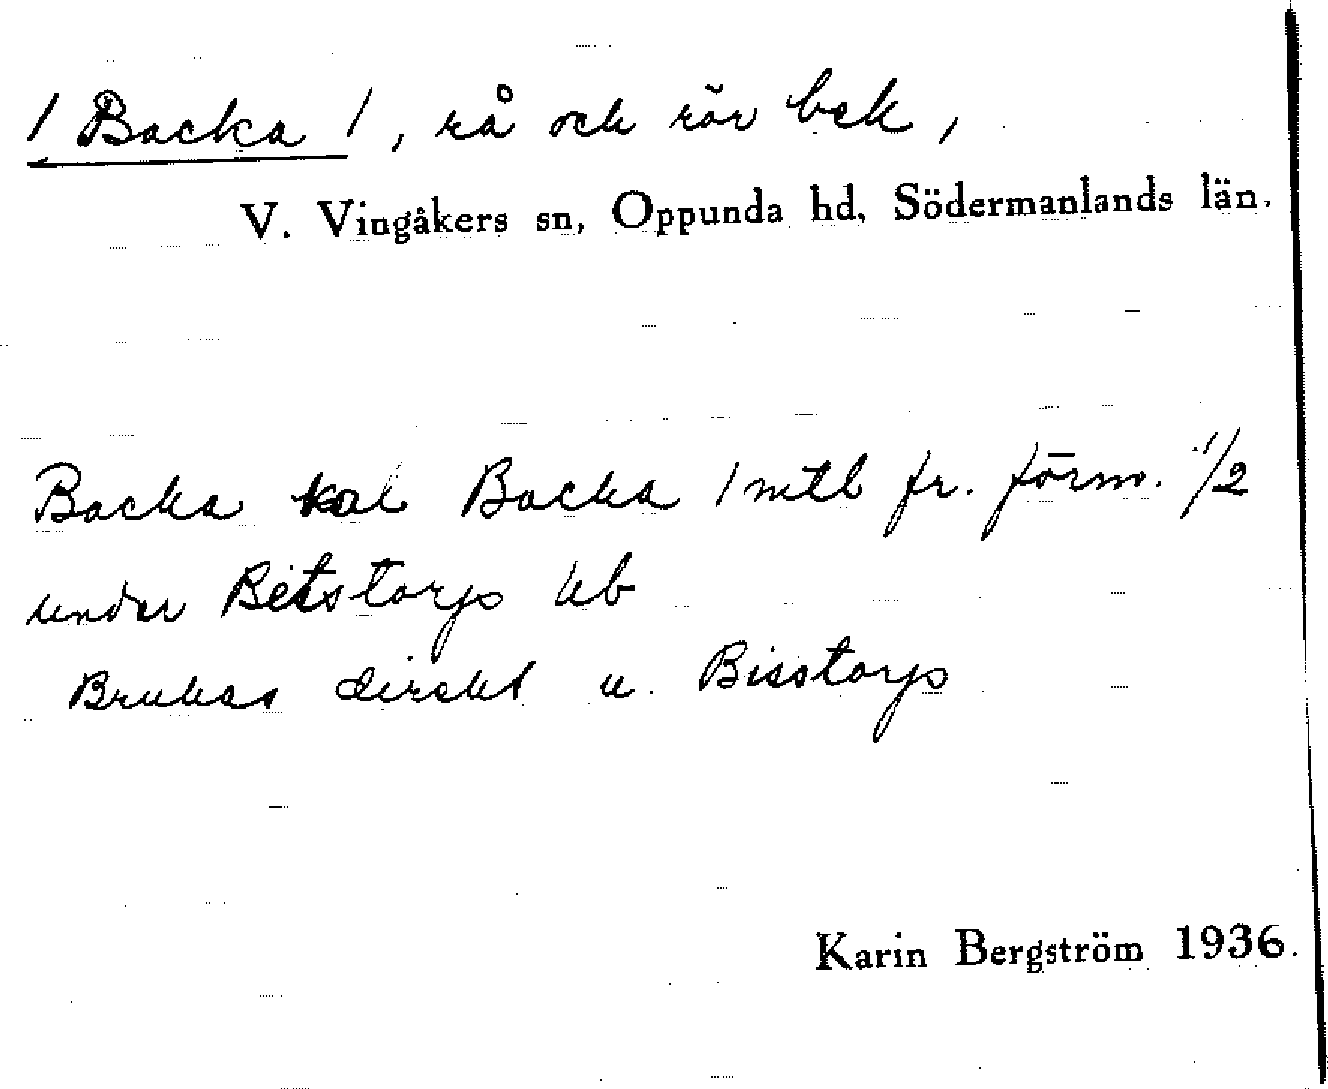 / Backa /, rå och rör bek,
V. Vingåkers sn, Oppunda hd, Södermanlands län.
Backa kal Backa 1 mtl fr. förm. 1/2
under Betstorps
Brukas direkt u. Bisstorp
Karin Bergström 1936.